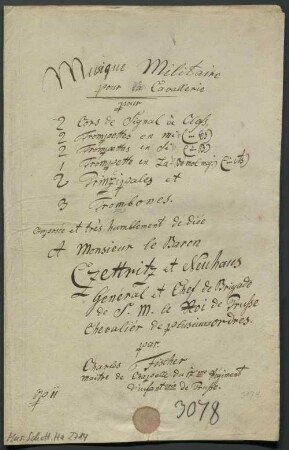 Musique Militaire
pour la Cavallerie
pour
2 Cors de Signal à Clefs.
2 Trompettes en mi♭ (Es)
2 Trompettes en si♭ (B)
1 Trompette en La♭ (As)
2 Prinzipales et
3 Trombones.
composée et très humblement dediée
A Monsieur le Baron
Czettritz et Neuhaus
Général et Chef de Brigade
de S. M. le Roi de Prusse
Chevalier de plusieurs ordres.
par
Charles Fischer
maitre de Chapelle du Regiment
d'infanterie de Prusse.
3078
Mus. Schott. Ha 2784